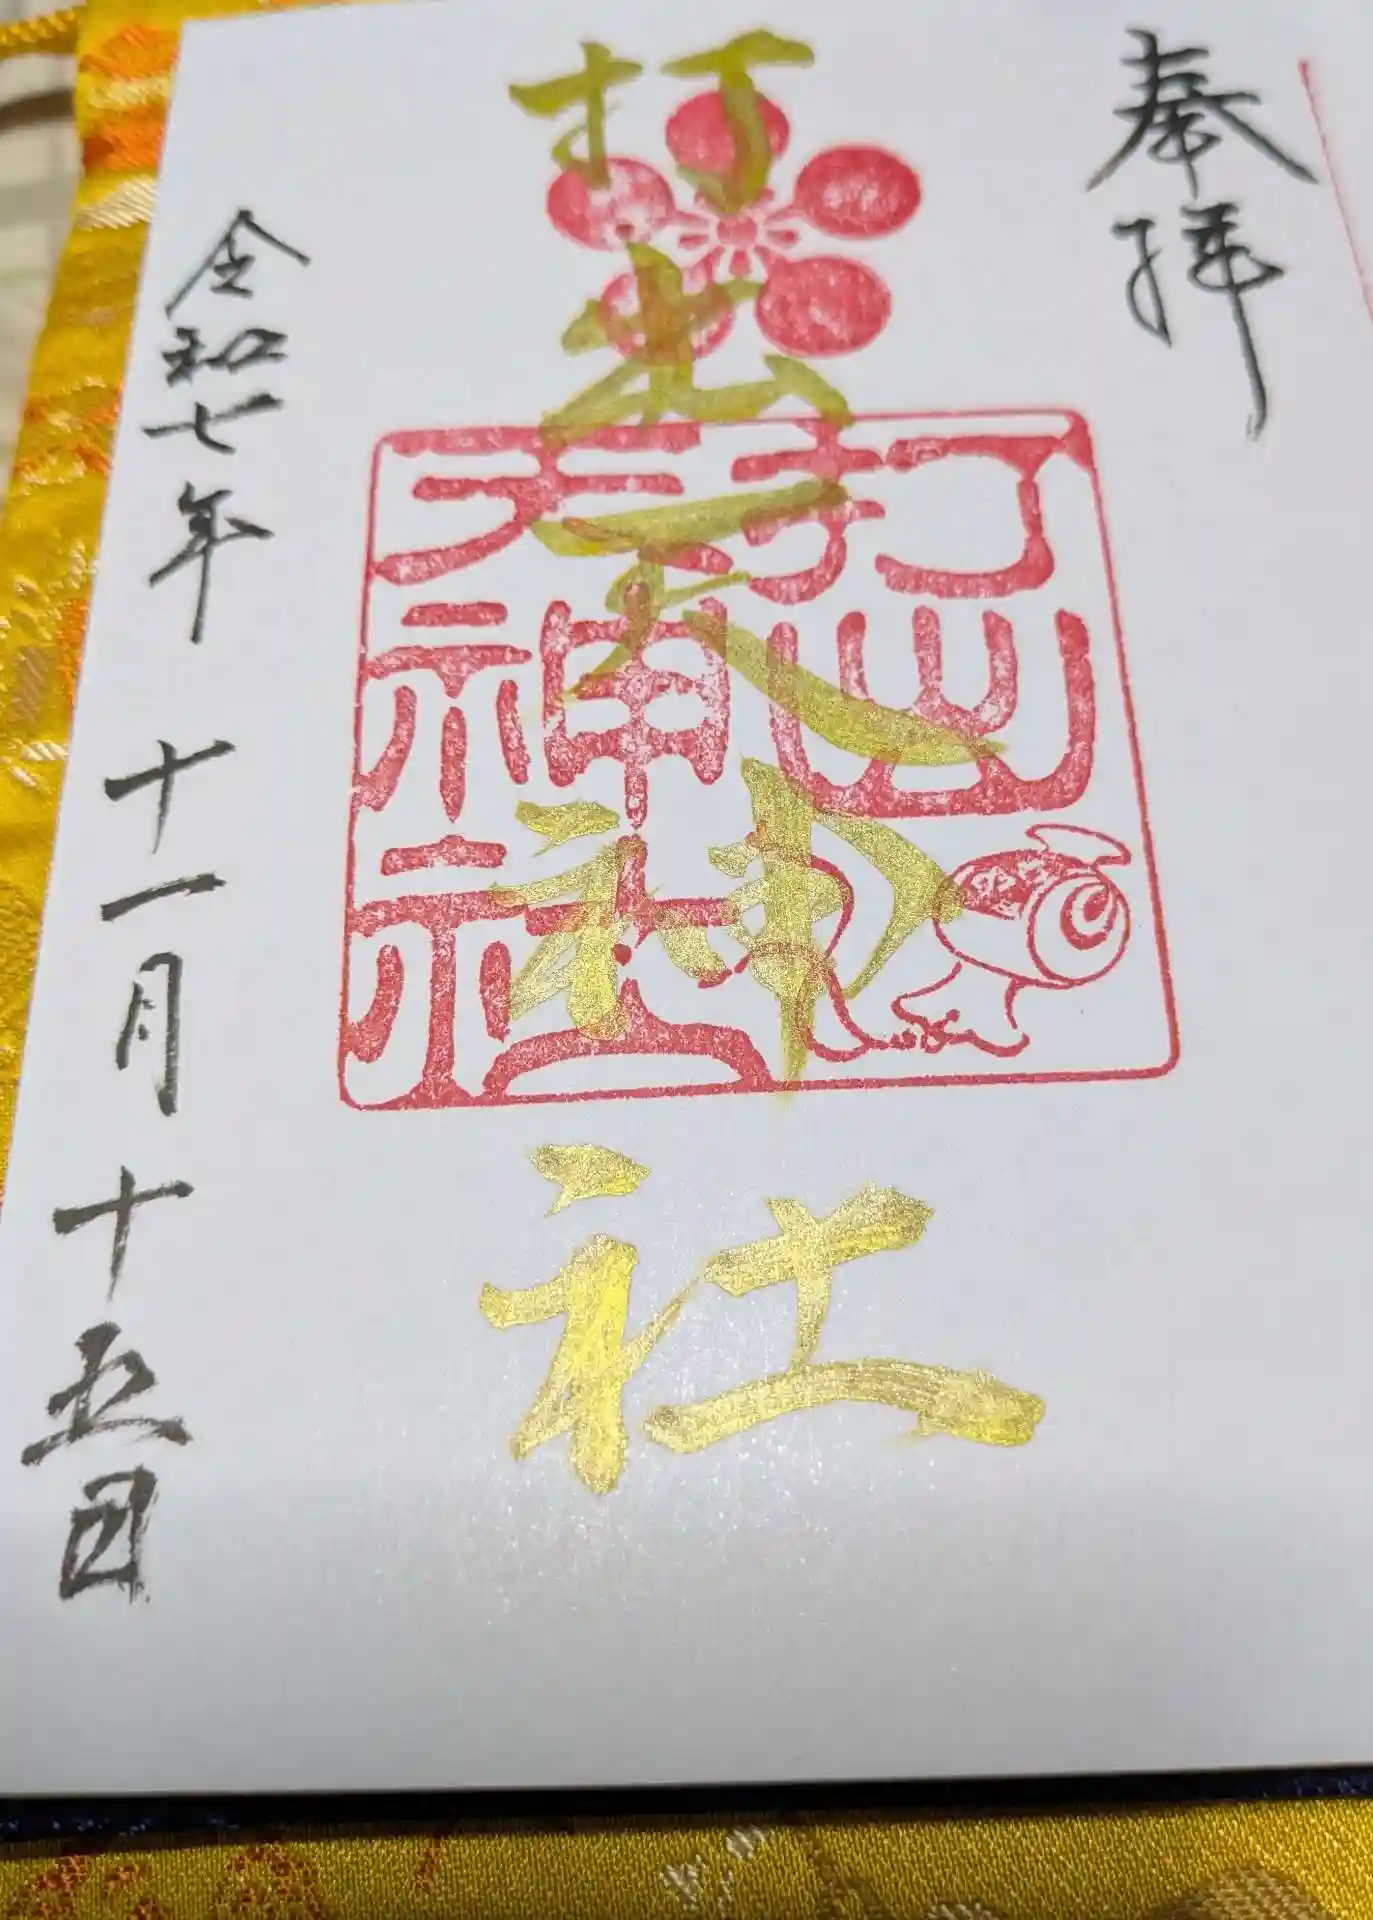 奉拝
打出天神社
打出天神社
令和七年十一月十五日